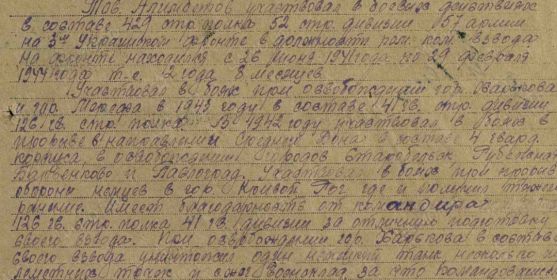 Тов. Алимбетов участвовал в боевых действиях
в составе 429 стр. полка 52 стр. дивизии 57 армии
на 3м Украинском фронте в должности пом. ком. взвода
На фронте находился с 26 июня 1941 года по 29 февраля
1944 года т-е. 2 года 8 месяцев.
Участвовал в боях при освобождении гор. Харькова
и гор. в 1943 году в составе 41 гв. стр. дивизии
126 гв. стр. полка. В 1942 году участвовал в боях в
прорыве в направлении Среднего Дона в составе 4 гвард.
корпуса, в освобождении городов Старобельск, Рубежная
и Павлоград. Участвовал в боях при прорыве
обороны немцев в гор. Кривой Рог где и получил тяжел.
ранение. Имеет благодарность от командира
126 гв. стр. полка 41 гв. дивизии за отличную подготовку
своего взвода. При освобождении гор. Харькова в составе
своего взвода уничтожил один немецкий танк несколько
точек и сжег за что